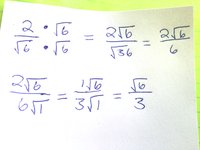 2/√6 • √6/√6 = 2√6/√36 = 2√6/6
2√6/6√1 = 1√6/3√1 = √6/3